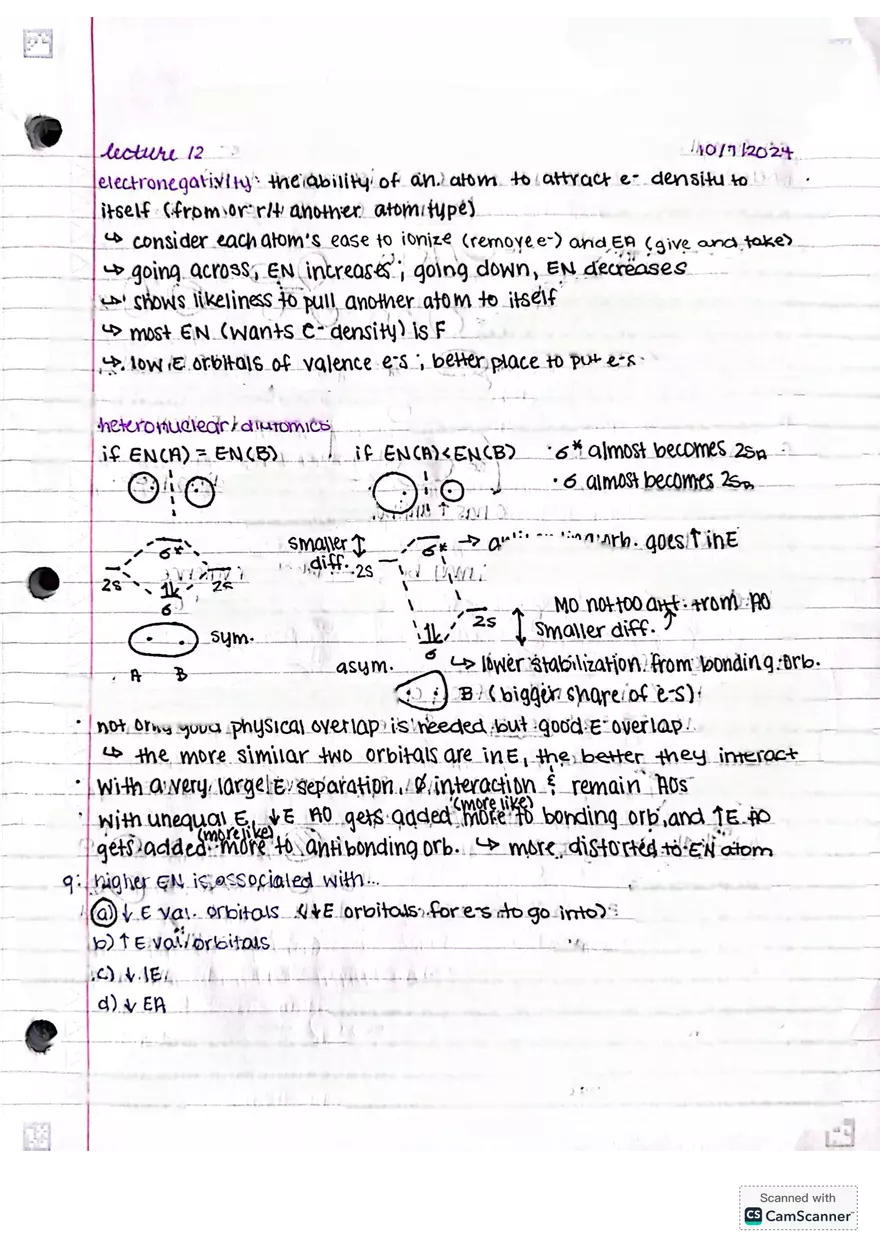 lecture 12 10/7/2024
electronegativity: the ability of an atom to attract e- density to
itself (from or r/t another atom type)
↳ consider each atom's ease to ionize (remove e-) and EA (give and take)
↳ going across, EN increases; going down, EN decreases
↳ shows likeliness to pull another atom to itself
↳ most EN (wants e- density) is F
↳ low E orbitals of valence e-s; better place to put e-s
heteronuclear diatomics
if EN(A) = EN(B) if EN(A) < EN(B) · σ* almost becomes 2sA
· σ almost becomes 2sB
σ* smaller ↕ σ* → orb. goes ↑ in E
diff. 2s
2s 2s
σ
2s MO not too from AO
↕ smaller diff.
sym. σ
asym. ↳ lower stabilization from bonding orb.
A B
B (bigger share of e-s)
· not only good physical overlap is needed but good E-overlap
↳ the more similar two orbitals are in E, the better they interact
· with a very large E separation, Ø interaction & remain AOs
(more like)
· with unequal E, ↓E AO gets added more to bonding orb, and ↑E AO
(more like)
gets added more to antibonding orb. ↳ more distorted to EN atom
q: higher EN is associated with...
a) ↓ E val. orbitals (↓E orbitals for e-s to go into)
b) ↑ E val. orbitals
c) ↓ IE
d) ↓ EA
Scanned with
CS CamScanner